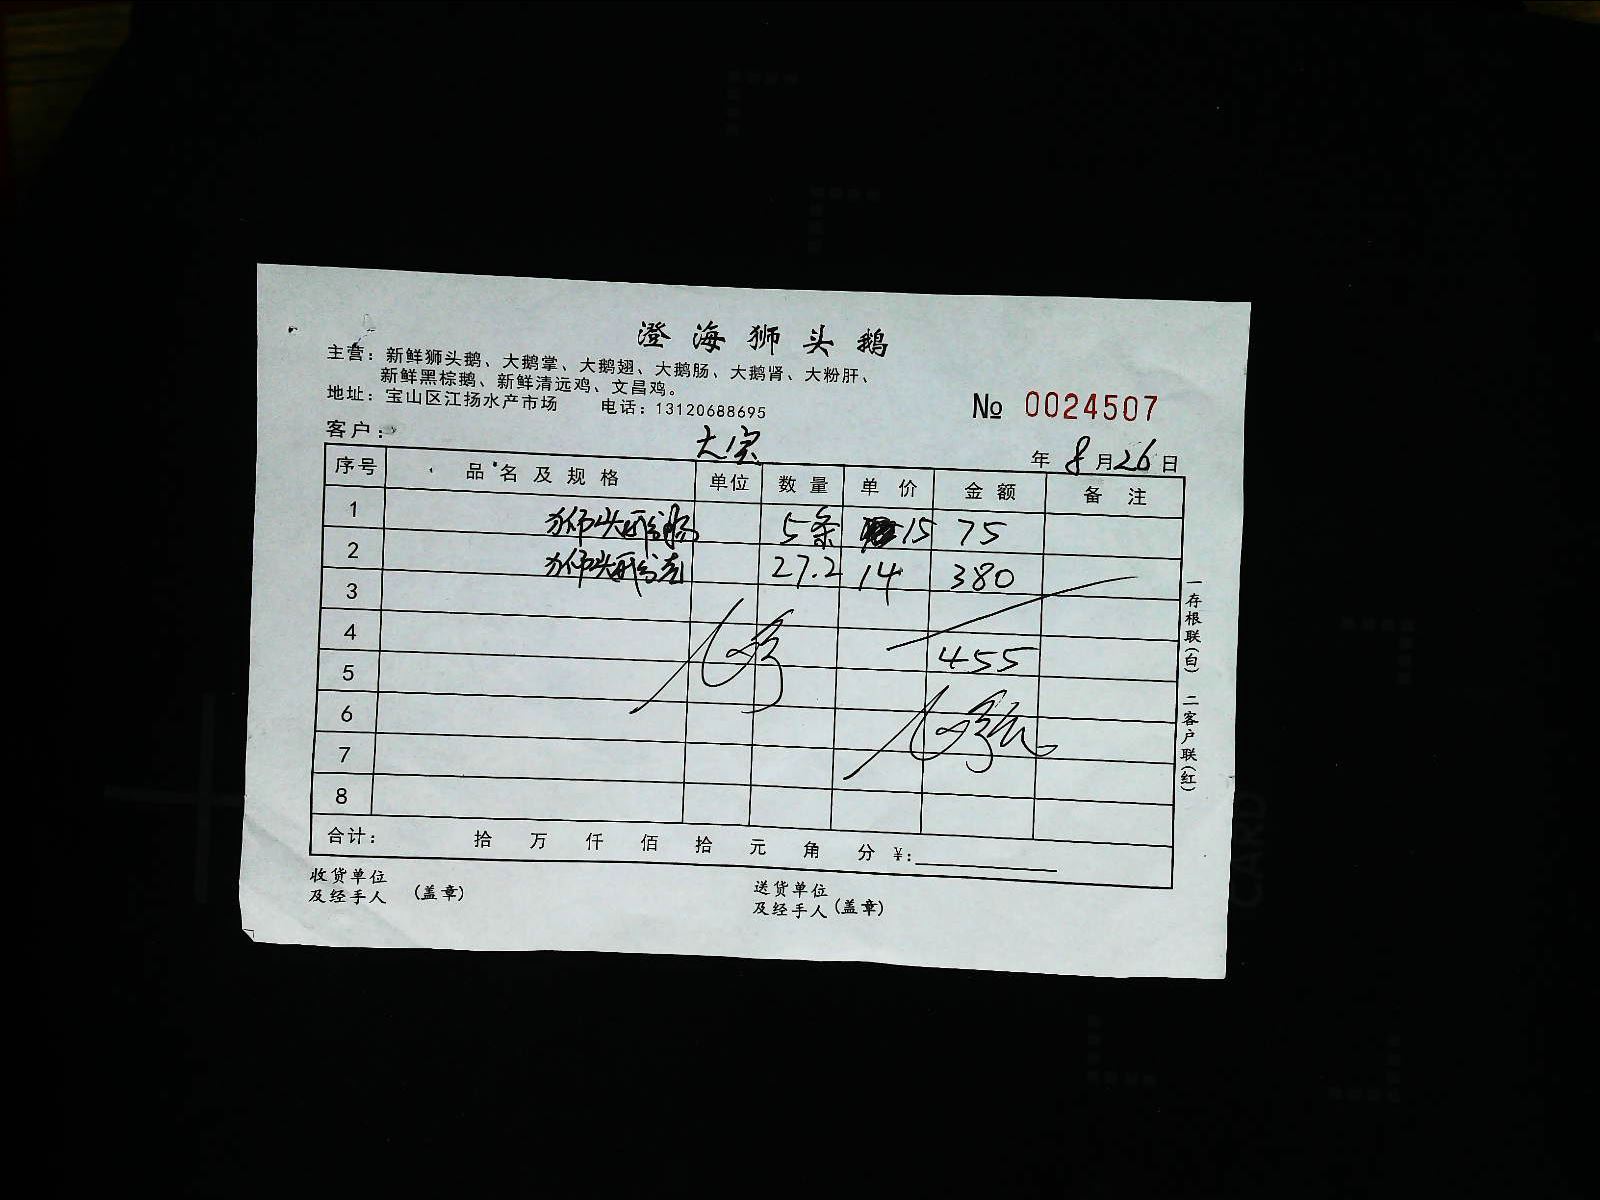 澄海狮头鹅
主营：新鲜狮头鹅、大鹅掌、大鹅翅、大鹅肠、大鹅肾、大粉肝、
新鲜黑棕鹅、新鲜清远鸡、文昌鸡。
地址：宝山区江扬水产市场 电话：13120688695
№ 0024507
客户： 大宗 年 8 月 26 日
序号 品名及规格 单位 数量 单价 金额 备注
1 狮头鹅肠 5条 15 75
2 狮头鹅 27.2 14 380
3
4 455
5
6
7
8
合计： 拾 万 仟 佰 拾 元 角 分 ¥:
收货单位
及经手人 (盖章)
送货单位
及经手人 (盖章)
一存根联(白) 二客户联(红)